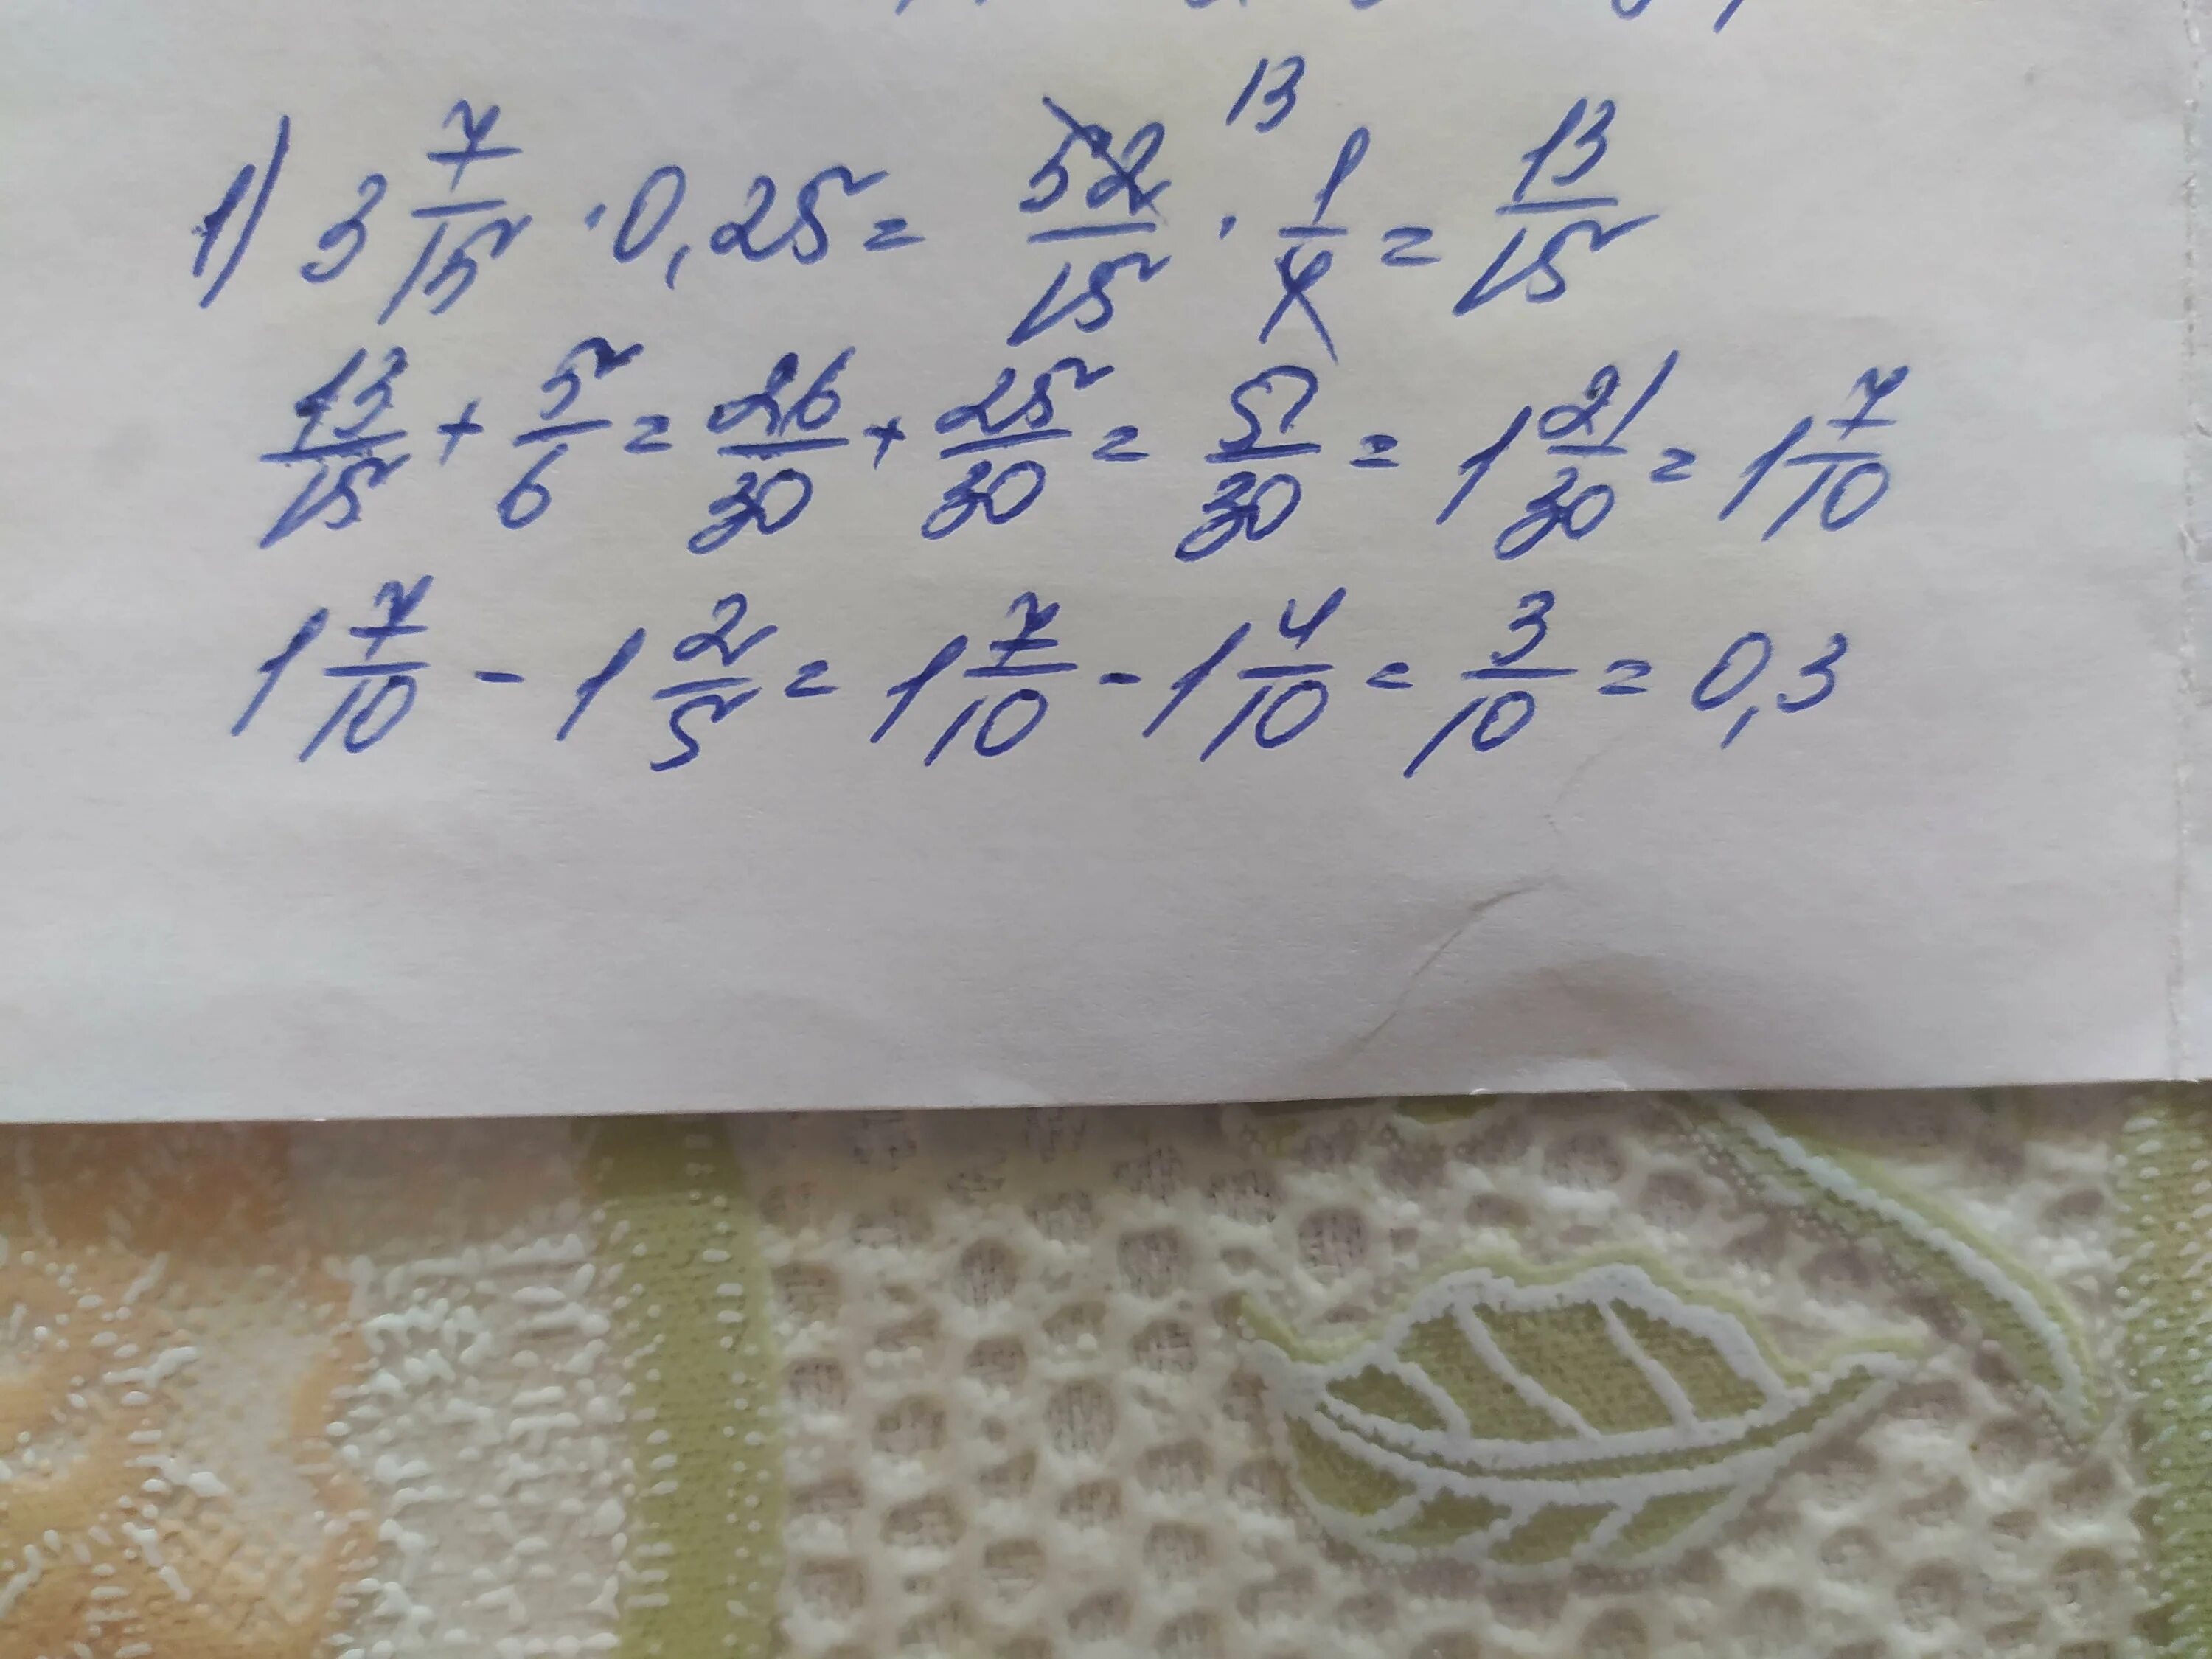 1) 3 7/15 · 0,25 = 52/15 · 13 1/4 = 13/15
13/15 + 5/6 = 26/30 + 25/30 = 51/30 = 1 21/30 = 1 7/10
1 7/10 - 1 2/5 = 1 7/10 - 1 4/10 = 3/10 = 0,3